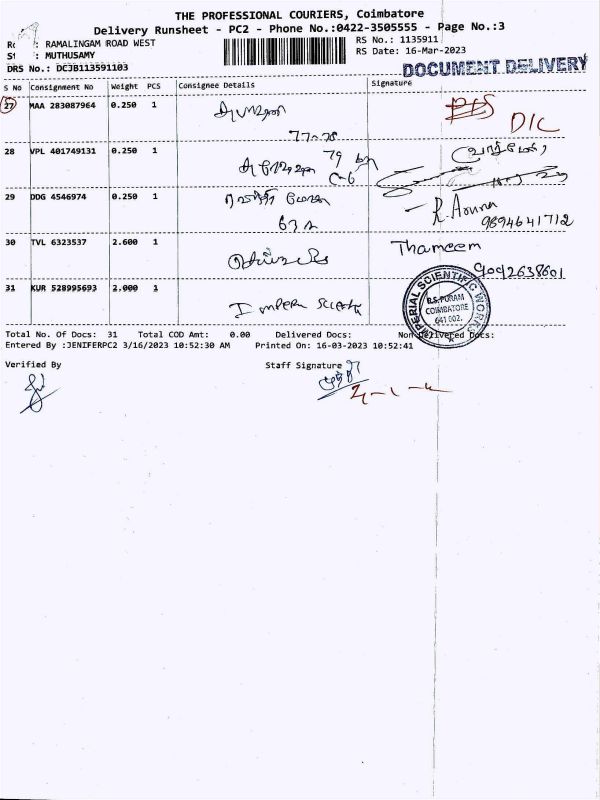 THE PROFESSIONAL COURIERS, Coimbatore
Delivery Runsheet - PC2 - Phone No.:0422-3505555 - Page No.:3
: RAMALINGAM ROAD WEST
RS No.: 1135911
: MUTHUSAMY
RS Date: 16-Mar-2023
DRS No.: DCJB113591103
DOCUMENT DELIVERY
S No Consignment No Weight PCS Consignee Details Signature
27 MAA 283087964 0.250 1
D/C
77-78
28 VPL 401749131 0.250 1
79
C-6
29 DDG 4546974 0.250 1
R. Aruna
9894641712
30 TVL 6323537 2.600 1 Thameem
9092638601
31 KUR 528995693 2.000 1
IMPERIAL SCIENTIFIC WORKS
R.S.PURAM
COIMBATORE
641 002.
Total No. Of Docs: 31 Total COD Amt: 0.00 Delivered Docs: Non Delivered Docs:
Entered By :JENIFERPC2 3/16/2023 10:52:30 AM Printed On: 16-03-2023 10:52:41
Verified By Staff Signature